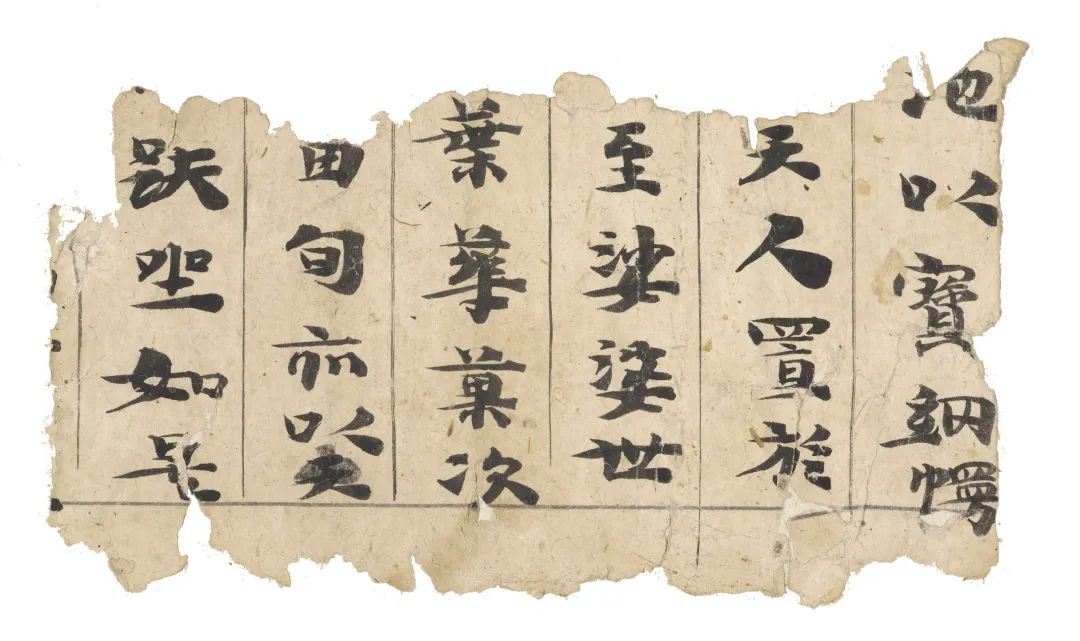 地以寶網幔
天人置於
至娑婆世
葉華菓次
由旬亦以大
趺坐如是